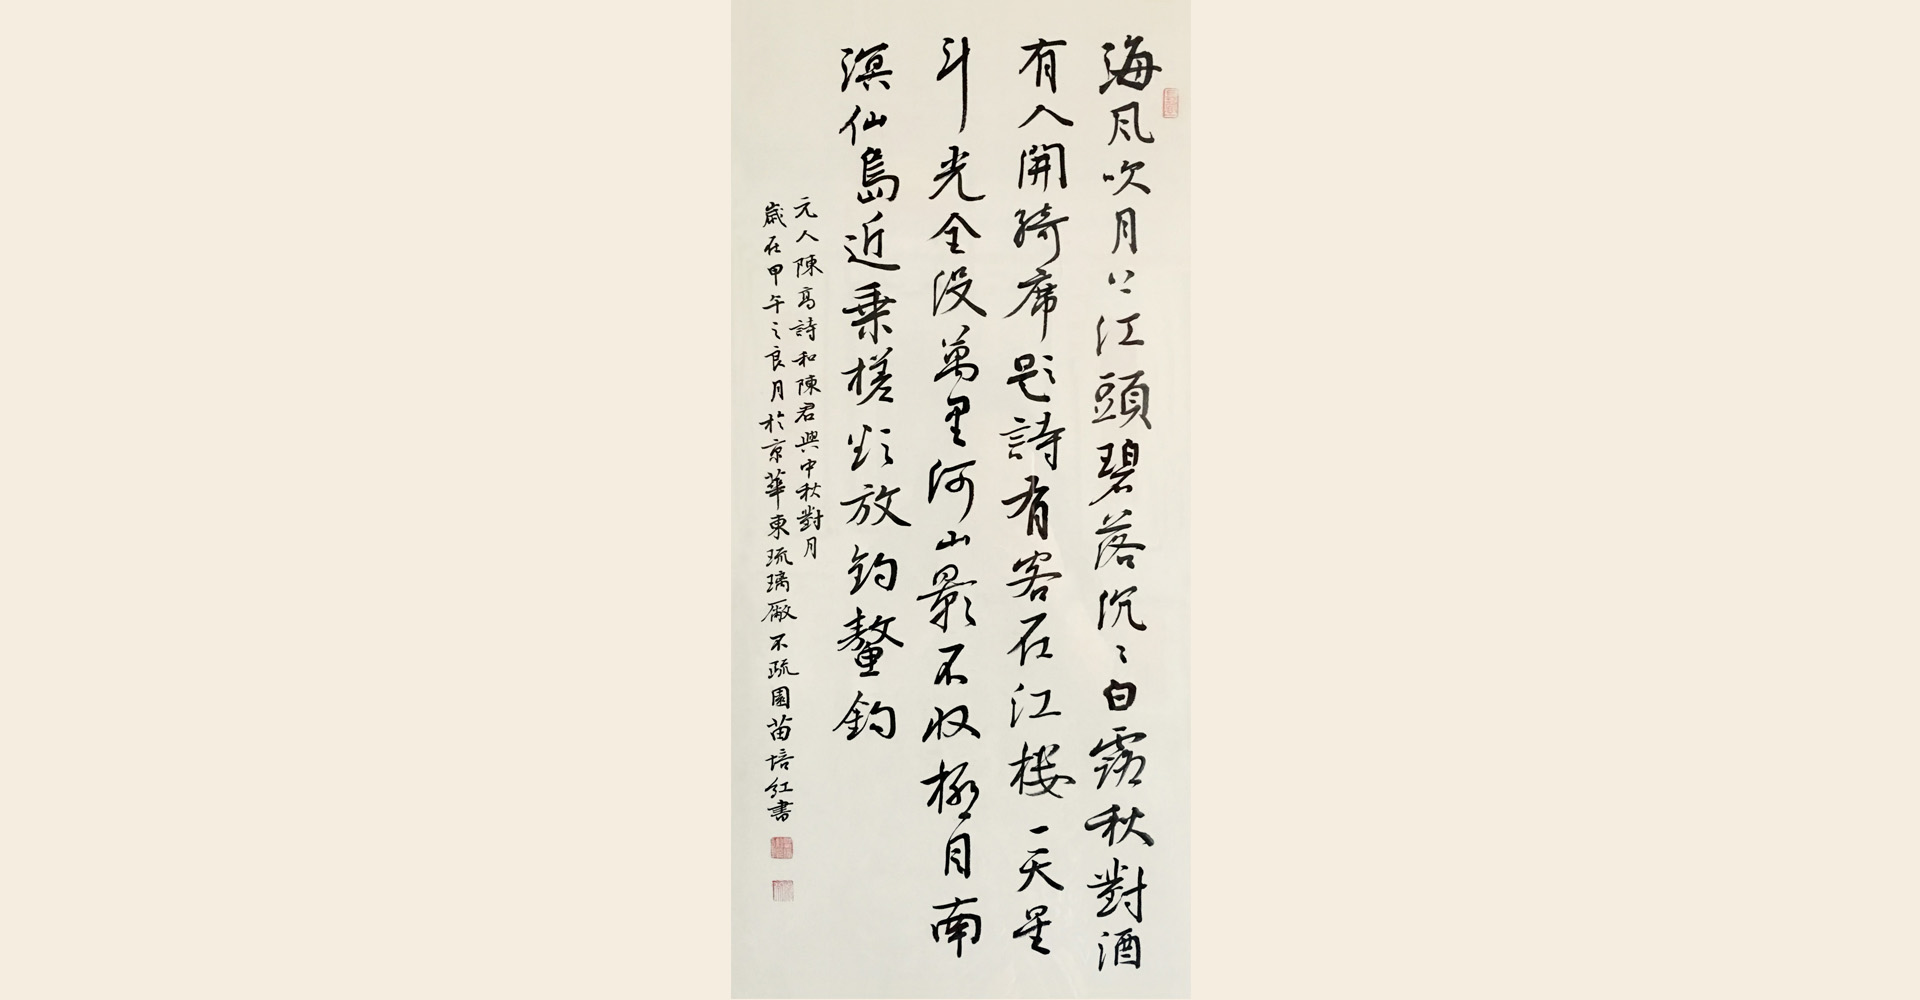 海風吹月上江頭碧落沉〻白露秋對酒
有人開綺席題詩有客在江楼一天星
斗光全没萬里河山影不收極目南
溟仙島近乗槎欲放釣鼇鈎
元人陳高詩和陳君興中秋對月
歲在甲午之良月於京華東琉璃廠不疏園苗培紅書